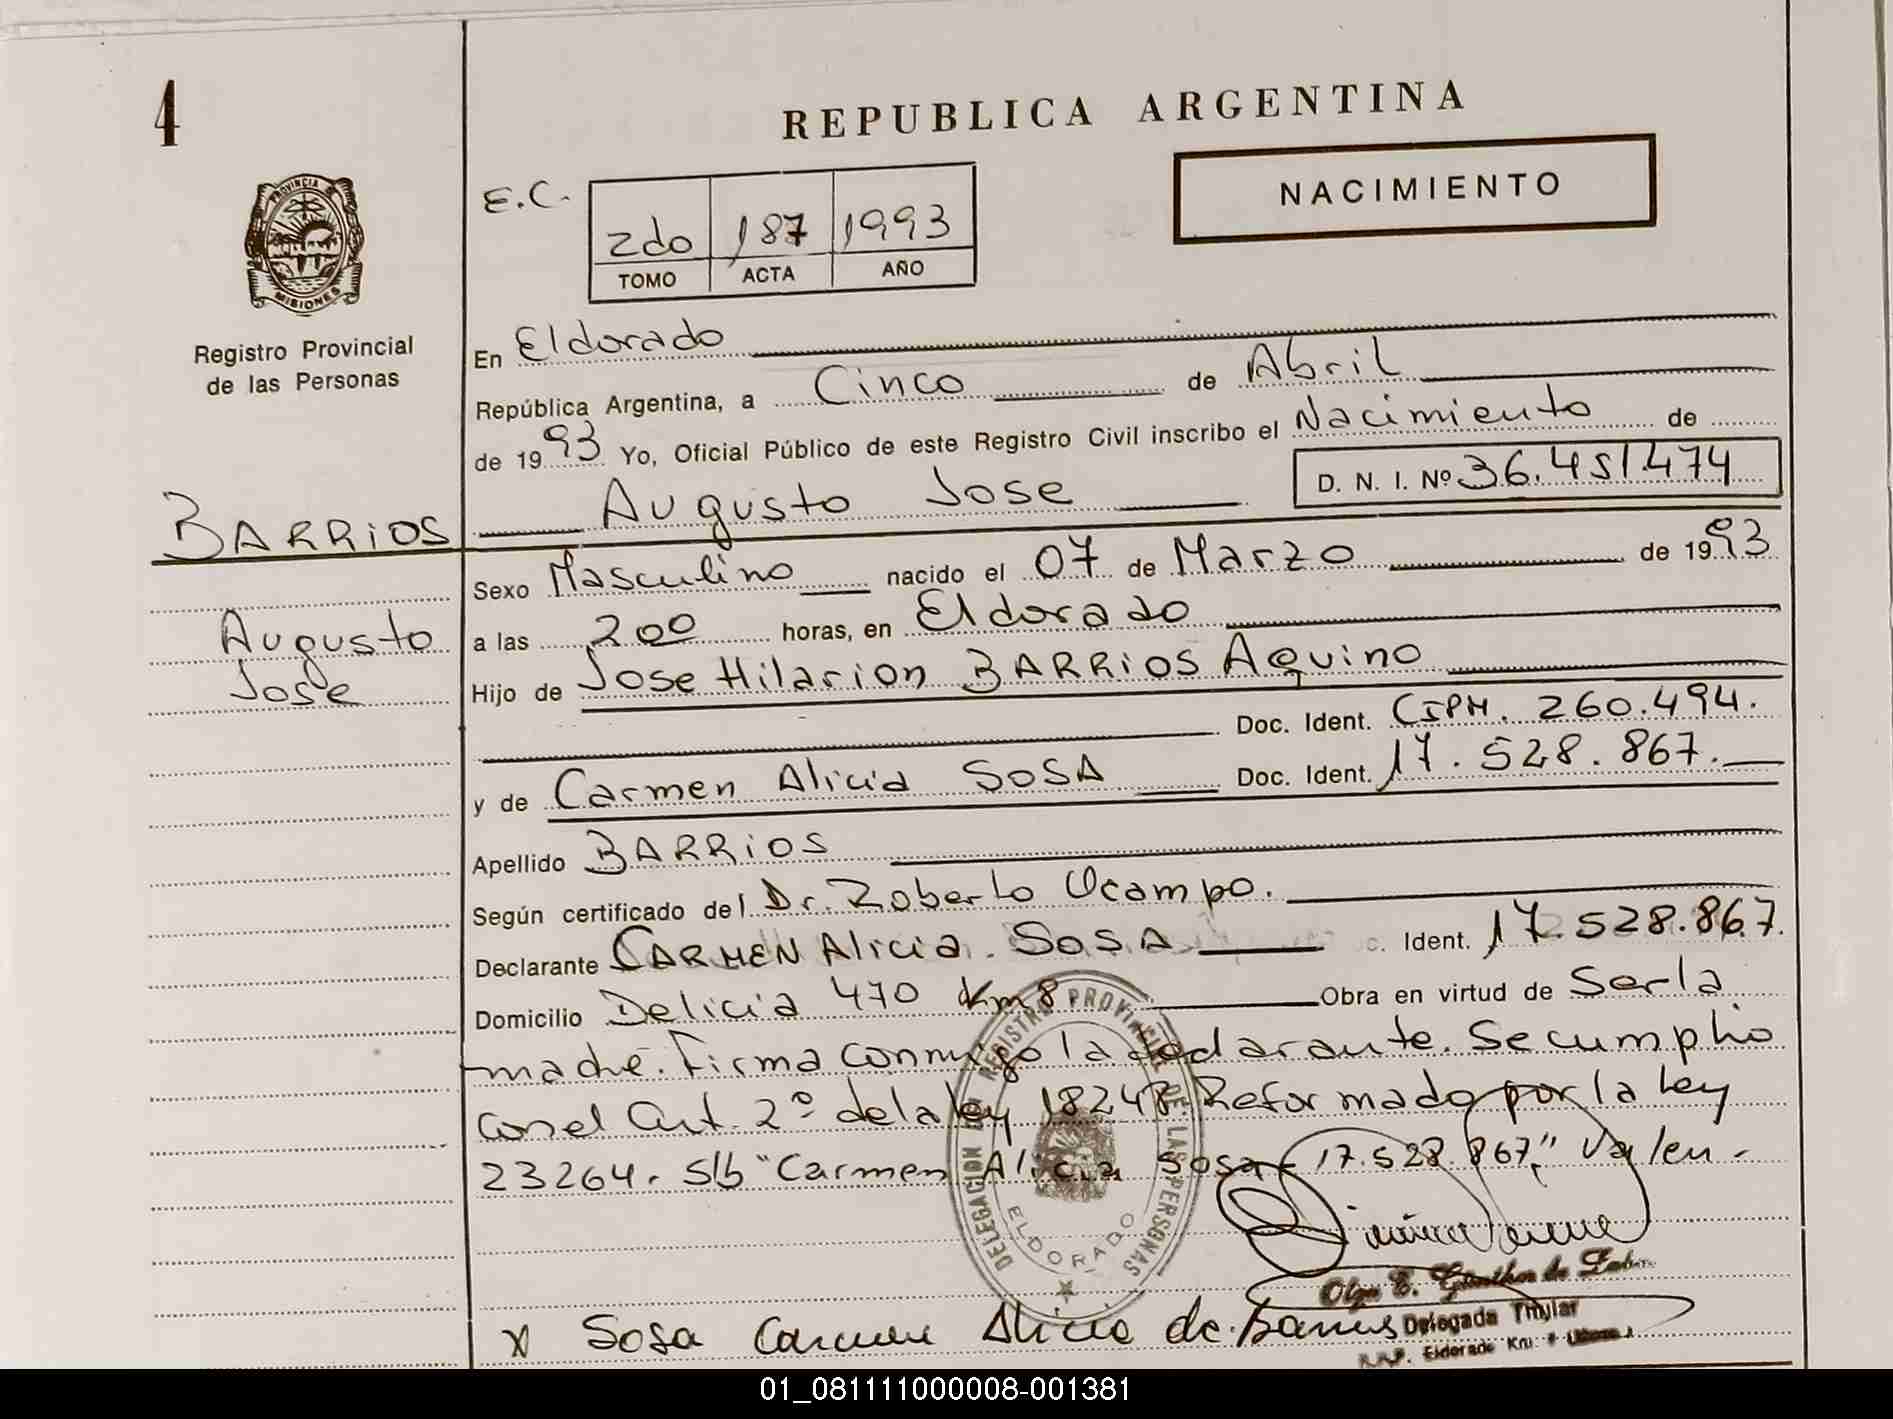 4
REPUBLICA ARGENTINA
NACIMIENTO
E.C.
2do 187 1993
TOMO ACTA AÑO
PROVINCIA DE MISIONES
Registro Provincial
de las Personas
En Eldorado
República Argentina, a Cinco de Abril
de 1993 Yo, Oficial Público de este Registro Civil inscribo el Nacimiento de
D. N. I. Nº 36.451.474
BARRIOS Augusto Jose
Sexo Masculino nacido el 07 de Marzo de 1993
Augusto
Jose
a las 200 horas, en Eldorado
Hijo de Jose Hilarion BARRIOS Aquino
Doc. Ident. CIPM. 260.494.
y de Carmen Alicia SOSA Doc. Ident. 17.528.867.
Apellido BARRIOS
Según certificado del Dr. Roberto Ocampo.
Declarante CARMEN Alicia. SOSA c. Ident. 17.528.867.
Domicilio Delicia 470 Km8. Obra en virtud de Serla
madre. Firma conmigo la declarante. Se cumplio
con el Art. 2º de la ley 18248 Reformado por la Ley
23264. S/b "Carmen Alicia Sosa - 17.528.867," Valen.
DELEGACION DEL REGISTRO PROVINCIAL DE LAS PERSONAS
ELDORADO
Olga E. Günther de
Delegada Titular
Eldorado Km.
x Sosa Carmen Alicia de Barrios
01_081111000008-001381